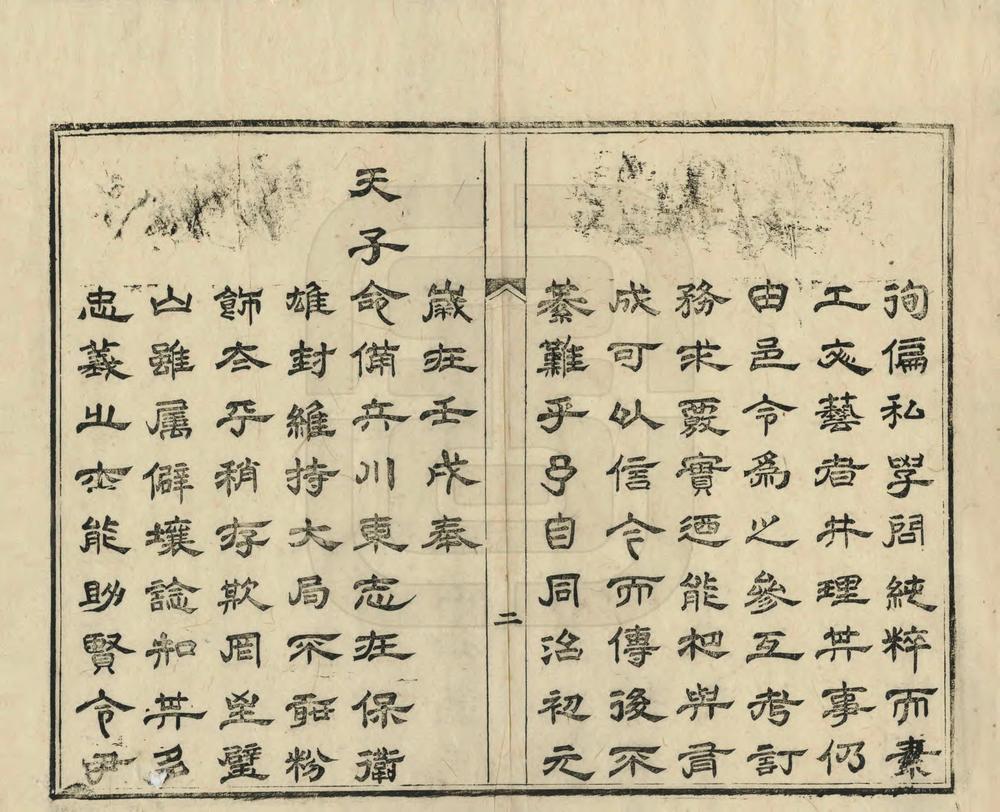 徇偏私學問純粹而素
工文藝者并理其事仍
由邑令為之參互考訂
務求覈實迺能相與有
成可以信今而傳後不
綦難乎予自同治初元
二
歲在壬戌奉
天子命備兵川東志在保衛
雄封維持大局不敢粉
飾太平稍存欺罔璧
山雖属僻壤諗知其多
忠義之能助賢令尹